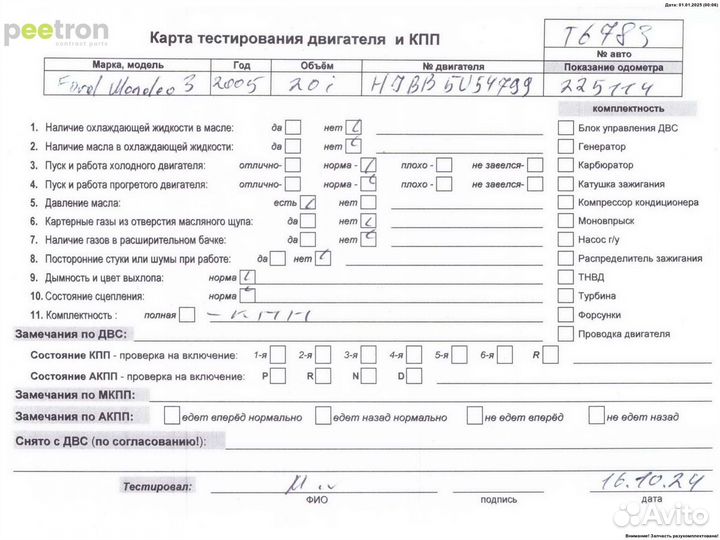 Дата: 01.01.2025 (00:06)
peetron
contract parts
Карта тестирования двигателя и КПП
T6783
№ авто
Марка, модель Год Объём № двигателя Показание одометра
Ford Mondeo 3 2005 20i HJBB5U54799 225114
комплектность
1. Наличие охлаждающей жидкости в масле: да нет Блок управления ДВС
2. Наличие масла в охлаждающей жидкости: да нет Генератор
3. Пуск и работа холодного двигателя: отлично- норма - плохо - не завелся- Карбюратор
4. Пуск и работа прогретого двигателя: отлично- норма - плохо - не завелся- Катушка зажигания
5. Давление масла: есть нет Компрессор кондиционера
6. Картерные газы из отверстия масляного щупа: да нет Моновпрыск
7. Наличие газов в расширительном бачке: да нет Насос г/у
8. Посторонние стуки или шумы при работе: да нет Распределитель зажигания
9. Дымность и цвет выхлопа: норма ТНВД
10. Состояние сцепления: норма Турбина
11. Комплектность : полная - КПП Форсунки
Замечания по ДВС: Проводка двигателя
Состояние КПП - проверка на включение: 1-я 2-я 3-я 4-я 5-я 6-я R
Состояние АКПП - проверка на включение: P R N D
Замечания по МКПП:
Замечания по АКПП: едет вперёд нормально едет назад нормально не едет вперёд не едет назад
Снято с ДВС (по согласованию!):
Тестировал: 16.10.24
ФИО подпись дата
Avito
Внимание! Запчасть разукомплектована!